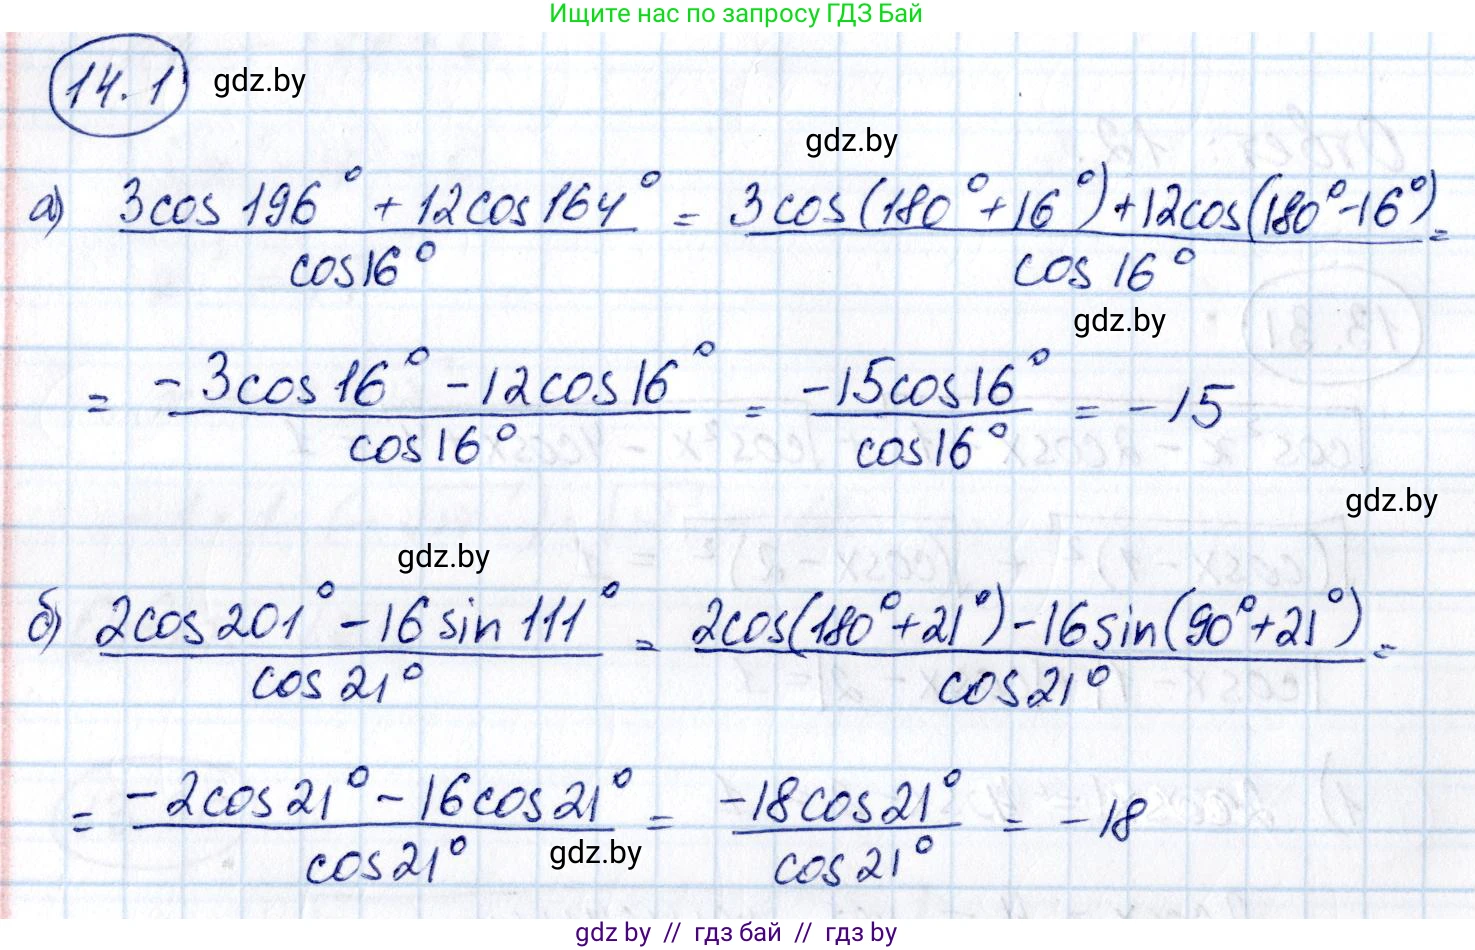 Ищите нас по запросу ГДЗ Бай
14.1 gdz.by
gdz.by
а) (3cos 196° + 12cos 164°) / cos16° = (3cos(180° + 16°) + 12cos(180° - 16°)) / cos 16° =
gdz.by
= (-3cos 16° - 12cos16°) / cos16° = -15cos16° / cos16° = -15
gdz.by
gdz.by
б) (2cos 201° - 16 sin 111°) / cos 21° = (2cos(180° + 21°) - 16sin(90° + 21°)) / cos21° =
= (-2cos21° - 16cos21°) / cos21° = -18cos21° / cos21° = -18
gdz.by
gdz by // гдз бай // гдз by